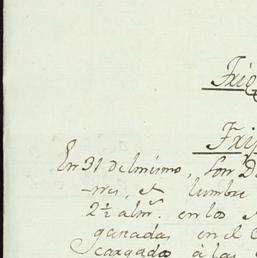 Frig
Frig
En 31 del mismo, son D
lumbre
2½ alms. en los
ganadas en el
cargado á las